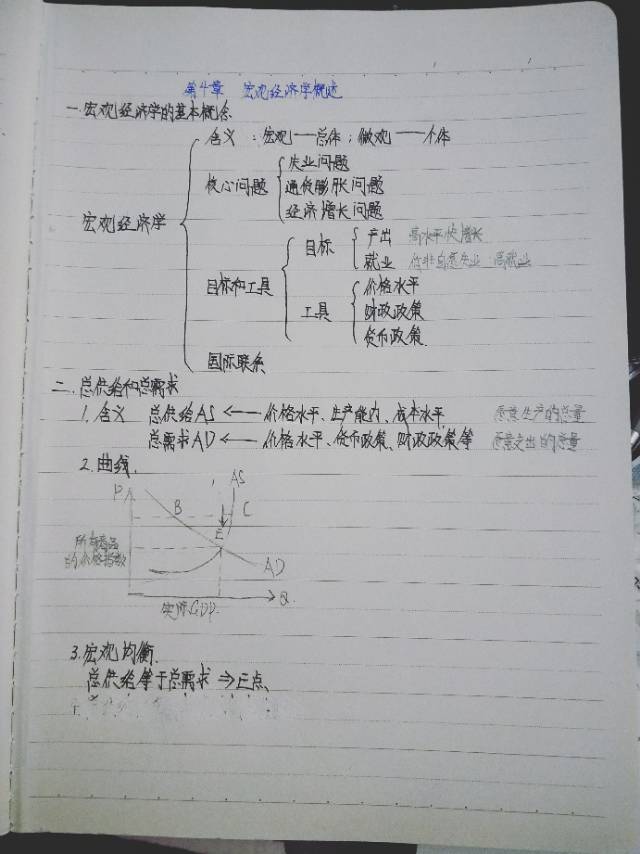 第4章 宏观经济学概述
一.宏观经济学的基本概念
含义：宏观——总体；微观——个体
失业问题
核心问题 通货膨胀问题
经济增长问题
宏观经济学
目标 产出 高水平快增长
就业 低非自愿失业 高就业
目标和工具
价格水平
工具 财政政策
货币政策.
国际联系
二.总供给和总需求
1.含义 总供给AS ← 价格水平、生产能力、成本水平 愿意生产的总量
总需求AD ← 价格水平、货币政策、财政政策等 愿意支出的总量
2.曲线.
P AS
B C
E
所有商品
的价格指数
AD
Q
实际GDP
3.宏观均衡.
总供给等于总需求 ⇒ E点、